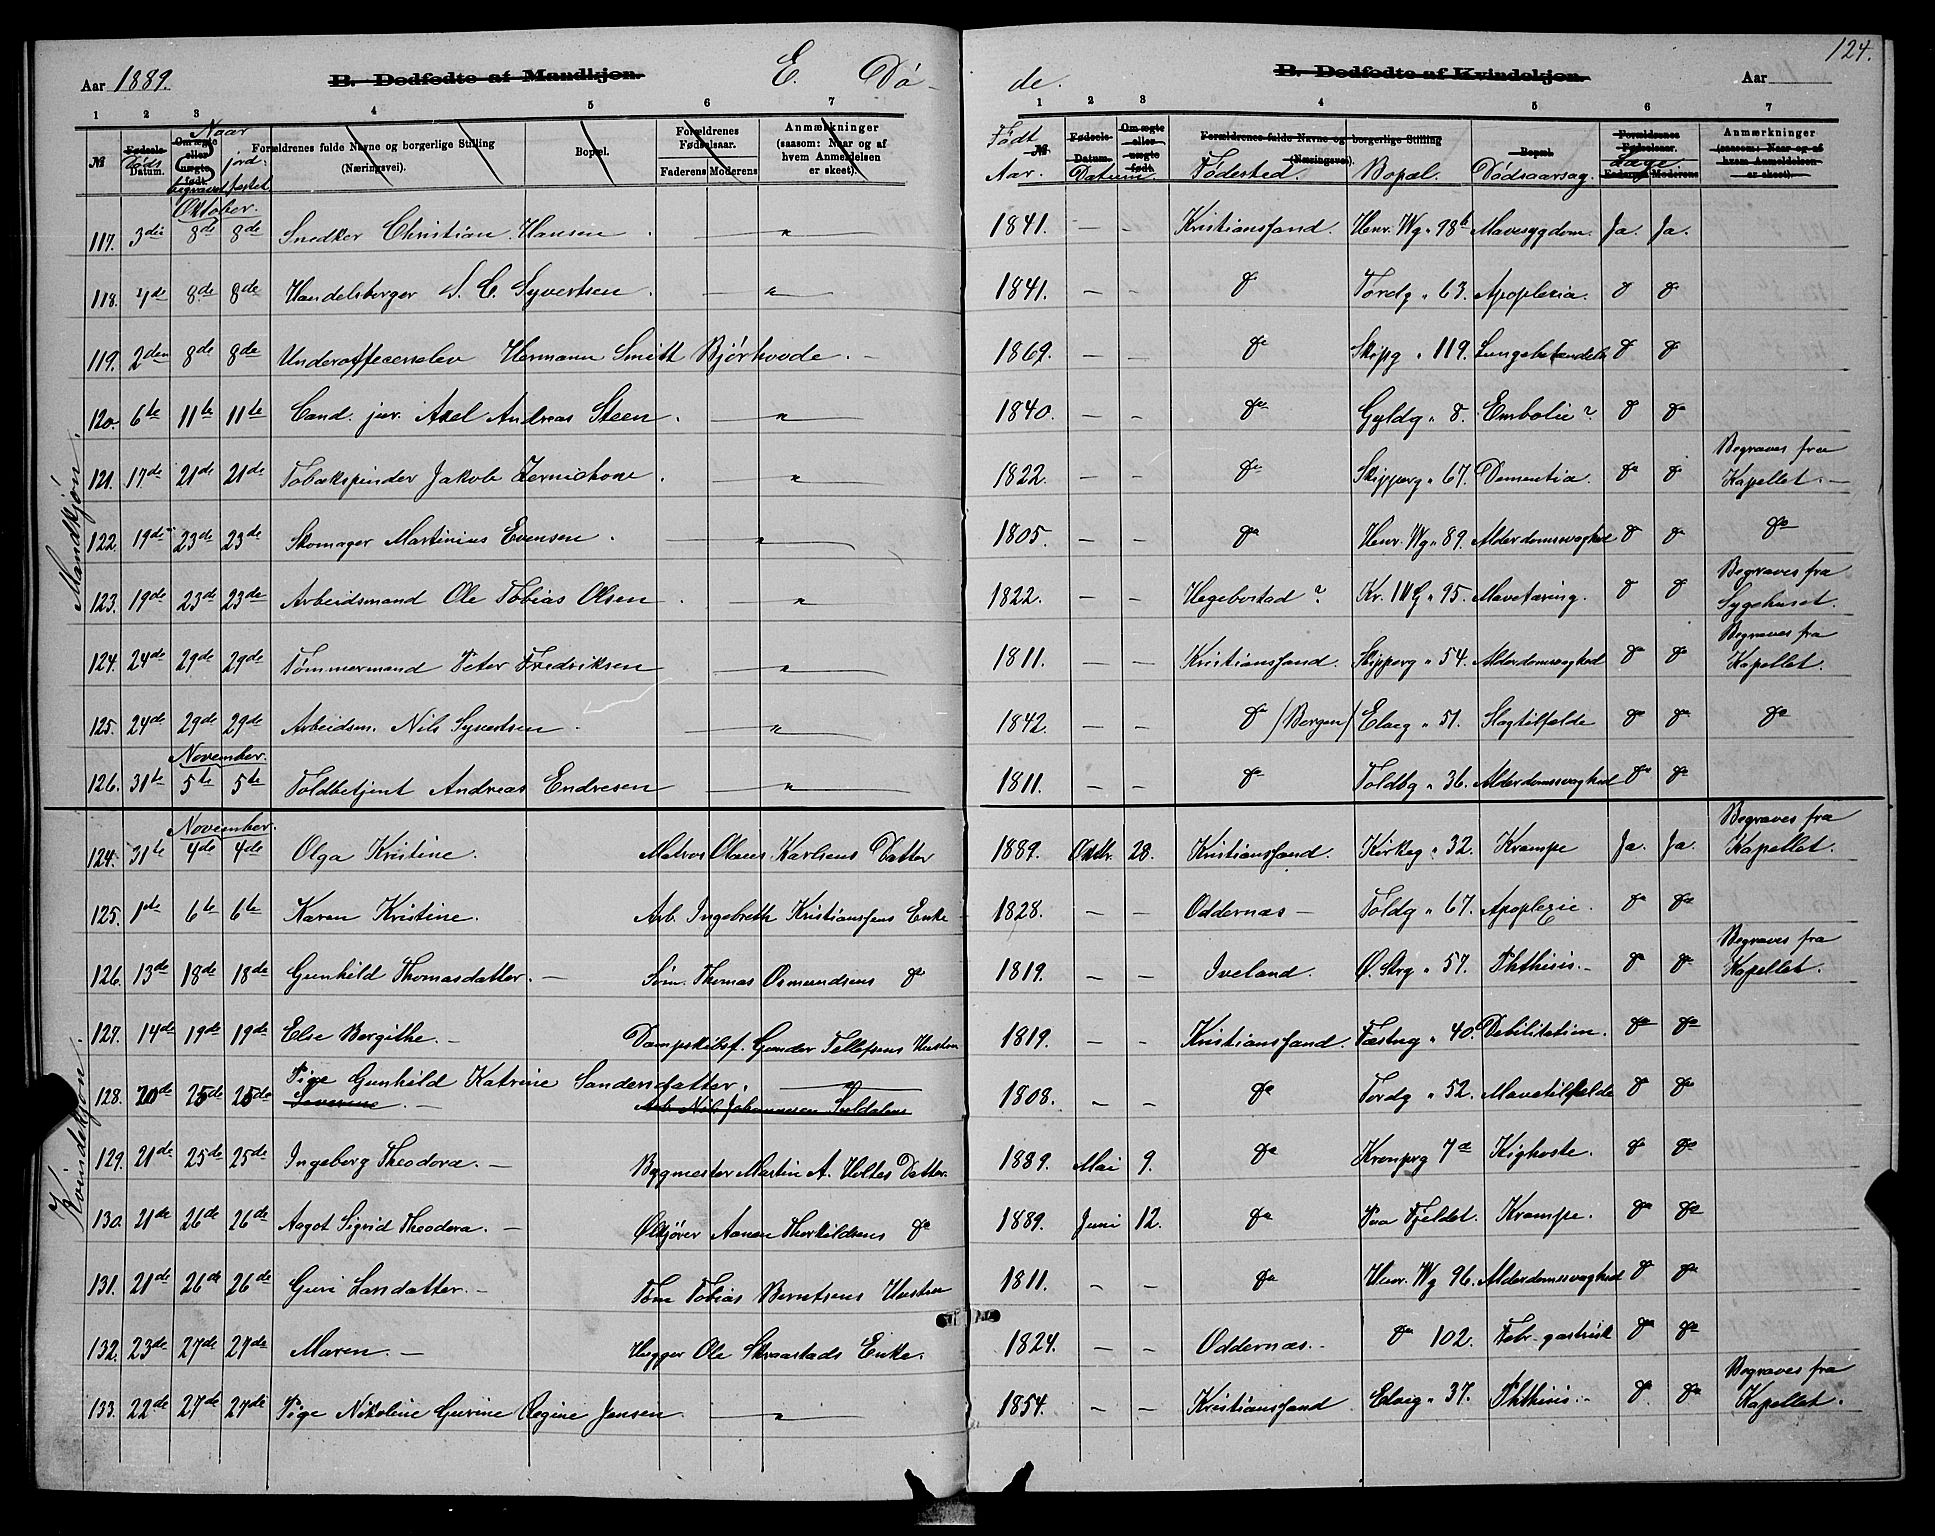 Aar 1889.
B. Dødfødte af Mandkjøn.
E. Dø-
1 2 3 4 5 6 7
№
Fødsels- Datum.
Døds
Naar
Om ægte eller uægte født.
begravet jordfæstet
Forældrenes fulde Navne og borgerlige Stilling (Næringsvei).
Bopæl.
Forældrenes Fødselsaar.
Faderens Moderens
Anmærkninger (saasom: Naar og af hvem Anmeldelsen er skeet).
Mandkjøn.
Oktober.
117. 3die 8de 8de Snedker Christian Hansen . — " —
118. 4de 8de 8de Handelsborger S. C. Syvertsen . — " —
119. 2den 8de 8de Underofficerselev Hermann Smitt Bjørkvode . —
120. 6te 11te 11te Cand. jur. Axel Andreas Steen . — " —
121. 17de 21de 21de Tobakspinder Jakob Zernichow . — " —
122. 19de 23de 23de Skomager Martinius Evensen . — " —
123. 19de 23de 23de Arbeidsmand Ole Tobias Olsen . — " —
124. 24de 29de 29de Tømmermand Peter Fredriksen — " —
125. 24de 29de 29de Arbeidsm. Nils Syvertsen . — " —
November.
126. 31te 5te 5te Toldbetjent Andreas Endresen — " —
Kvindekjøn.
November.
124. 31te 4de 4de Olga Kristine. Matros Olaus Karlsens Datter
125. 1ste 6te 6te Karen Kristine. Arb. Ingebreth Kristiansens Enke —
126. 13de 18de 18de Gunhild Thomasdatter. — Søm. Thomas Osmundsens do
127. 14de 19de 19de Else Bergithe. — Dampskibsf. Gunder Tellefsens Hustru
128. 20de 25de 25de Pige Gunhild Katrine Sandersdatter. — " —
Severine. — Arb. Nils Johannesen Suldalens
129. 21de 25de 25de Ingeborg Theodora. — Bygmester Martin A. Holtes Datter.
130. 21de 26de 26de Aagot Sigrid Theodora. — Ølkjører Aanen Thorkildsens do
131. 21de 26de 26de Guri Larsdatter. — Tøm Tobias Berntsens Hustru
132. 23de 27de 27de Maren. — Hugger Ole Skraastads Enke.
133. 22de 27de 27de Pige Nikoline Gurine Regine Jensen. — " —
124.
de.
B. Dødfødte af Kvindekjøn.
Aar
1 2 3 4 5 6 7
Født
№
Aar.
Fødsels- Datum.
Datum
Om ægte eller uægte født.
Forældrenes fulde Navne og borgerlige Stilling (Næringsvei).
Fødested. Bopæl.
Bopæl.
Dødsaarsag.
Forældrenes Fødselsaar.
Læge
Faderens Moderens
Anmærkninger (saasom: Naar og af hvem Anmeldelsen er skeet).
1841. — — Kristianssand. Henr. Wg. " 98b Mavesygdom. Ja. Ja.
1841. — — do Tordg " 63. Apoplexia. do do
1869. — — do Skipg " 119. Lungebetændelse do do
1840. — — do Gyldg " 8. Embolie? do do
1822. — — do Skipperg " 67. Dementia. do do Begraves fra Kapellet. —
1805. — — do Henr. Wg " 89. Alderdomssvaghed do do do
1822. — — Hegebostad? Kr. IV G " 95. Mavetæring. do do Begraves fra Sygehuset.
1811. — — Kristianssand. Skipperg " 54. Alderdomssvaghed do do Begraves fra Kapellet.
1842. — — do (Bergen) Elveg " 51. Slagtilfælde do do do
1811. — — do Toldbg " 36. Alderdomssvaghed do do
1889. Oktbr. 28. Kristianssand. Kirkeg " 32. Krampe Ja. Ja. Begraves fra Kapellet.
1828. — — Oddernæs — Toldg " 67. Apoplexie. do do
1819. — — Iveland. Ø. Strg " 57. Phthisis. — do do Begraves fra Kapellet.
1819. — — Kristianssand. Fæstng " 40. Debilitation. do do
1808. — — do Tordg " 52. Mavetilfælde do do
1889. Mai 9. do Kronprg 7a Kighoste. do do
1889. Juni 12. do Paa Fjeldet. Krampe. do do
1811. — — do Henr. Wg 96. Alderdomssvaghed do do
1824. — — Oddernæs. — do 102. Febr. gastrisk do do
1854. — — Kristianssand Elveg " 37. Phthisis. — do do Begraves fra Kapellet.